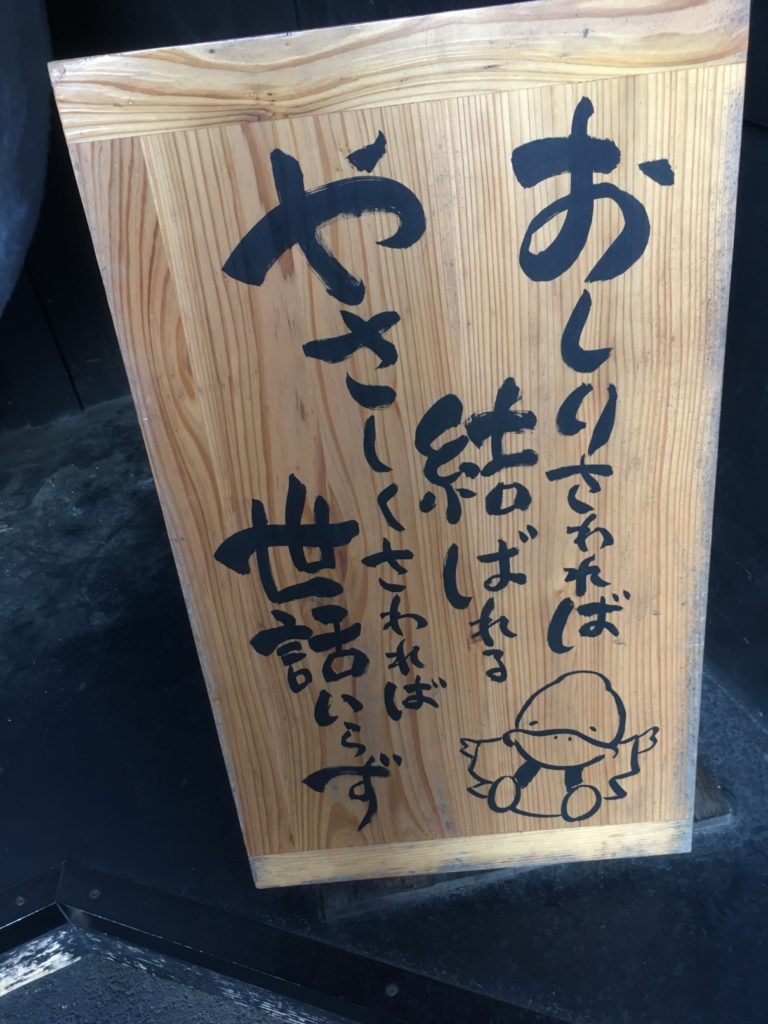 おしりさわれば
結ばれる
やさしくさわれば
世話いらず